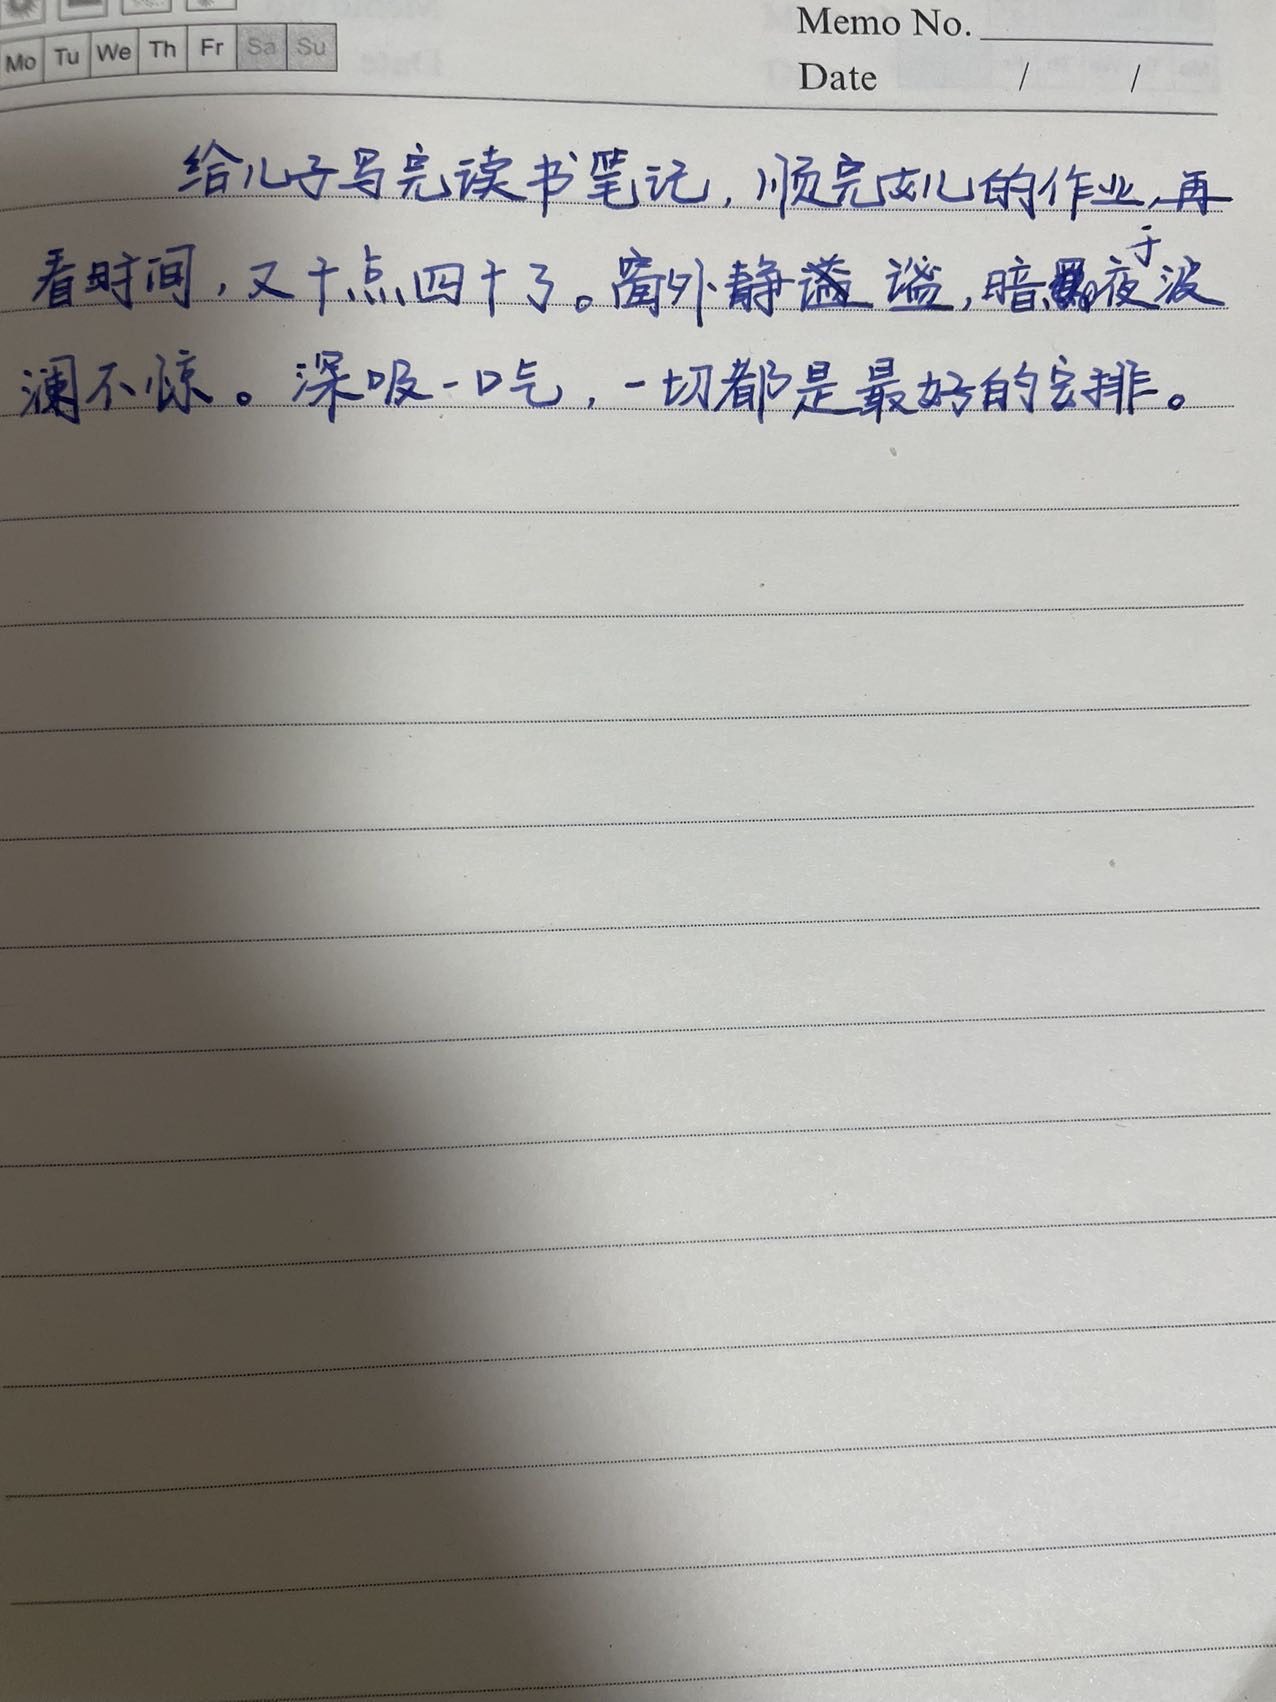 Mo Tu We Th Fr Sa Su
Memo No.
Date / /
给儿子写完读书笔记，顺完女儿的作业，再
看时间，又十点四十了。窗外静谧谧，暗夜于波
澜不惊。深吸一口气，一切都是最好的安排。